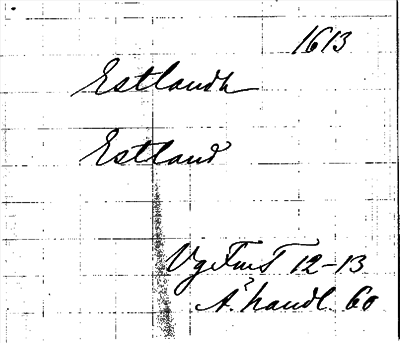 1613
Estlandh
Estland
VgFmT 12-13
Å. handl. 60